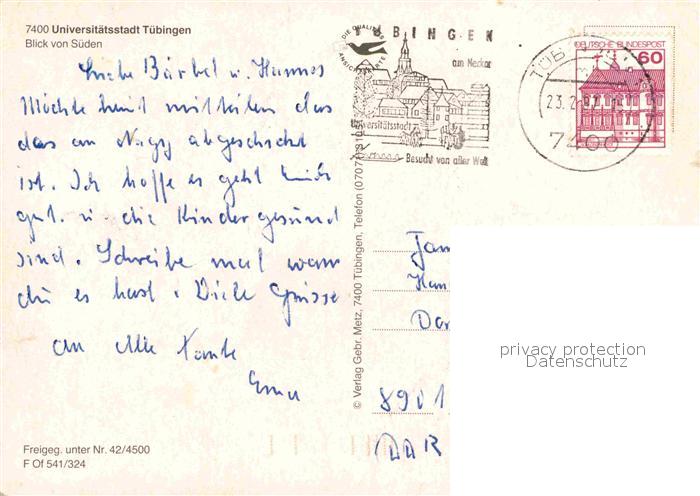 7400 Universitätsstadt Tübingen
Blick von Süden
Liebe Bärbel u. Hannes
Möchte heut mitteilen das
das an Nagy abgeschickt
ist. Ich hoffe es geht Euch
gut. u. die Kinder gesund
sind. Schreibe mal wann
du es hast. Viele Grüsse
an Alle Tante
Erna
Freigeg. unter Nr. 42/4500
F Of 541/324
© Verlag Gebr. Metz, 7400 Tübingen, Telefon (0707
DIE QUALITÄTS
ANSICHTSKARTE
TÜBINGEN
am Neckar
Universitätsstadt
Besucht von aller Welt
TÜB
23.2
7400
DEUTSCHE BUNDESPOST
60
Fam
Han
Dor
8901
DDR
privacy protection
Datenschutz